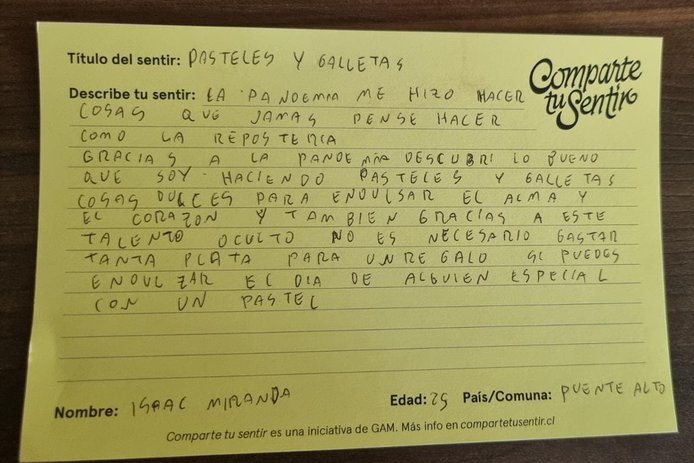 Título del sentir: PASTELES Y GALLETAS
Comparte
tu Sentir
Describe tu sentir: LA PANDEMIA ME HIZO HACER
COSAS QUE JAMAS PENSE HACER
COMO LA REPOSTERIA
GRACIAS A LA PANDEMIA DESCUBRI LO BUENO
QUE SOY HACIENDO PASTELES Y GALLETAS
COSAS DULCES PARA ENDULSAR EL ALMA Y
EL CORAZON Y TAMBIEN GRACIAS A ESTE
TALENTO OCULTO NO ES NECESARIO GASTAR
TANTA PLATA PARA UN REGALO SI PUEDES
ENDULZAR EL DIA DE ALGUIEN ESPECIAL
CON UN PASTEL
Nombre: ISAAC MIRANDA Edad: 25 País/Comuna: PUENTE ALTO
Comparte tu sentir es una iniciativa de GAM. Más info en compartetusentir.cl